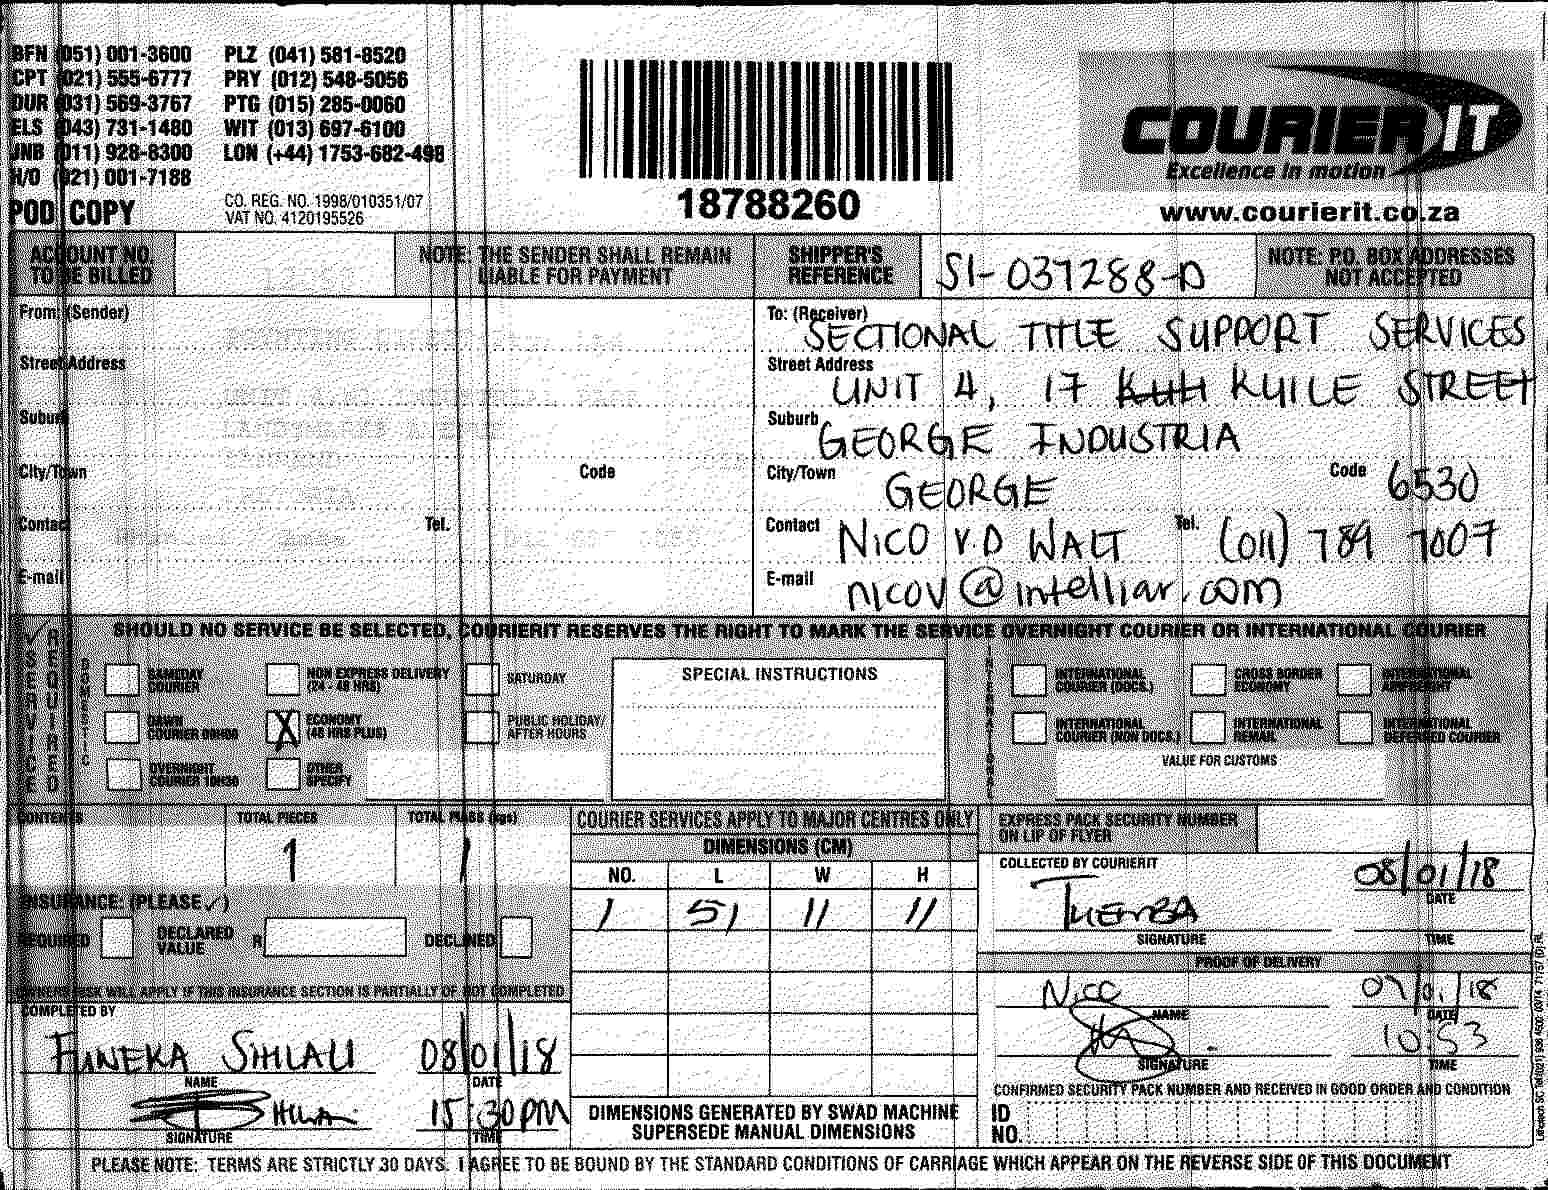 BFN (051) 001-3600 PLZ (041) 581-8520
CPT (021) 555-6777 PRY (012) 548-5056
DUR (031) 569-3767 PTG (015) 285-0060
ELS (043) 731-1480 WIT (013) 697-6100
JNB (011) 928-8300 LON (+44) 1753-682-498
H/O (021) 001-7188
POD COPY
CO. REG. NO. 1998/010351/07
VAT NO. 4120195526
18788260
COURIER IT
Excellence in motion
www.courierit.co.za
ACCOUNT NO. TO BE BILLED
NOTE: THE SENDER SHALL REMAIN LIABLE FOR PAYMENT
SHIPPER'S REFERENCE SI-037288-D
NOTE: P.O. BOX ADDRESSES NOT ACCEPTED
From: (Sender)
Street Address
Suburb
City/Town Code
Contact Tel.
E-mail
To: (Receiver) SECTIONAL TITLE SUPPORT SERVICES
Street Address UNIT 4, 17 KYILE STREET
Suburb GEORGE INDUSTRIA
City/Town GEORGE Code 6530
Contact NICO V.D WALT Tel. (011) 789 7007
E-mail nicov@intelliar.com
SERVICE REQUIRED
SHOULD NO SERVICE BE SELECTED, COURIERIT RESERVES THE RIGHT TO MARK THE SERVICE OVERNIGHT COURIER OR INTERNATIONAL COURIER
DOMESTIC
SAMEDAY COURIER
NON EXPRESS DELIVERY (24 - 48 HRS)
SATURDAY
DAWN COURIER 09H00
X ECONOMY (48 HRS PLUS)
PUBLIC HOLIDAY/ AFTER HOURS
OVERNIGHT COURIER 10H30
OTHER SPECIFY
SPECIAL INSTRUCTIONS
INTERNATIONAL
INTERNATIONAL COURIER (DOCS.)
CROSS BORDER ECONOMY
INTERNATIONAL AIRFREIGHT
INTERNATIONAL COURIER (NON DOCS.)
INTERNATIONAL REMAIL
INTERNATIONAL DEFERRED COURIER
VALUE FOR CUSTOMS
CONTENTS
TOTAL PIECES 1
TOTAL MASS (kgs) 1
INSURANCE: (PLEASE ✓)
REQUIRED DECLARED VALUE R DECLINED
OWNERS RISK WILL APPLY IF THIS INSURANCE SECTION IS PARTIALLY OF NOT COMPLETED
COMPLETED BY
FUNEKA SIHLALI 08/01/18
NAME DATE
15:30PM
SIGNATURE TIME
COURIER SERVICES APPLY TO MAJOR CENTRES ONLY
DIMENSIONS (CM)
NO. L W H
1 51 11 11
DIMENSIONS GENERATED BY SWAD MACHINE
SUPERSEDE MANUAL DIMENSIONS
EXPRESS PACK SECURITY NUMBER ON LIP OF FLYER
COLLECTED BY COURIERIT
THEMBA 08/01/18
DATE
SIGNATURE TIME
PROOF OF DELIVERY
Nico 09/01/18
NAME DATE
10:53
SIGNATURE TIME
CONFIRMED SECURITY PACK NUMBER AND RECEIVED IN GOOD ORDER AND CONDITION
ID NO.
PLEASE NOTE: TERMS ARE STRICTLY 30 DAYS. I AGREE TO BE BOUND BY THE STANDARD CONDITIONS OF CARRIAGE WHICH APPEAR ON THE REVERSE SIDE OF THIS DOCUMENT